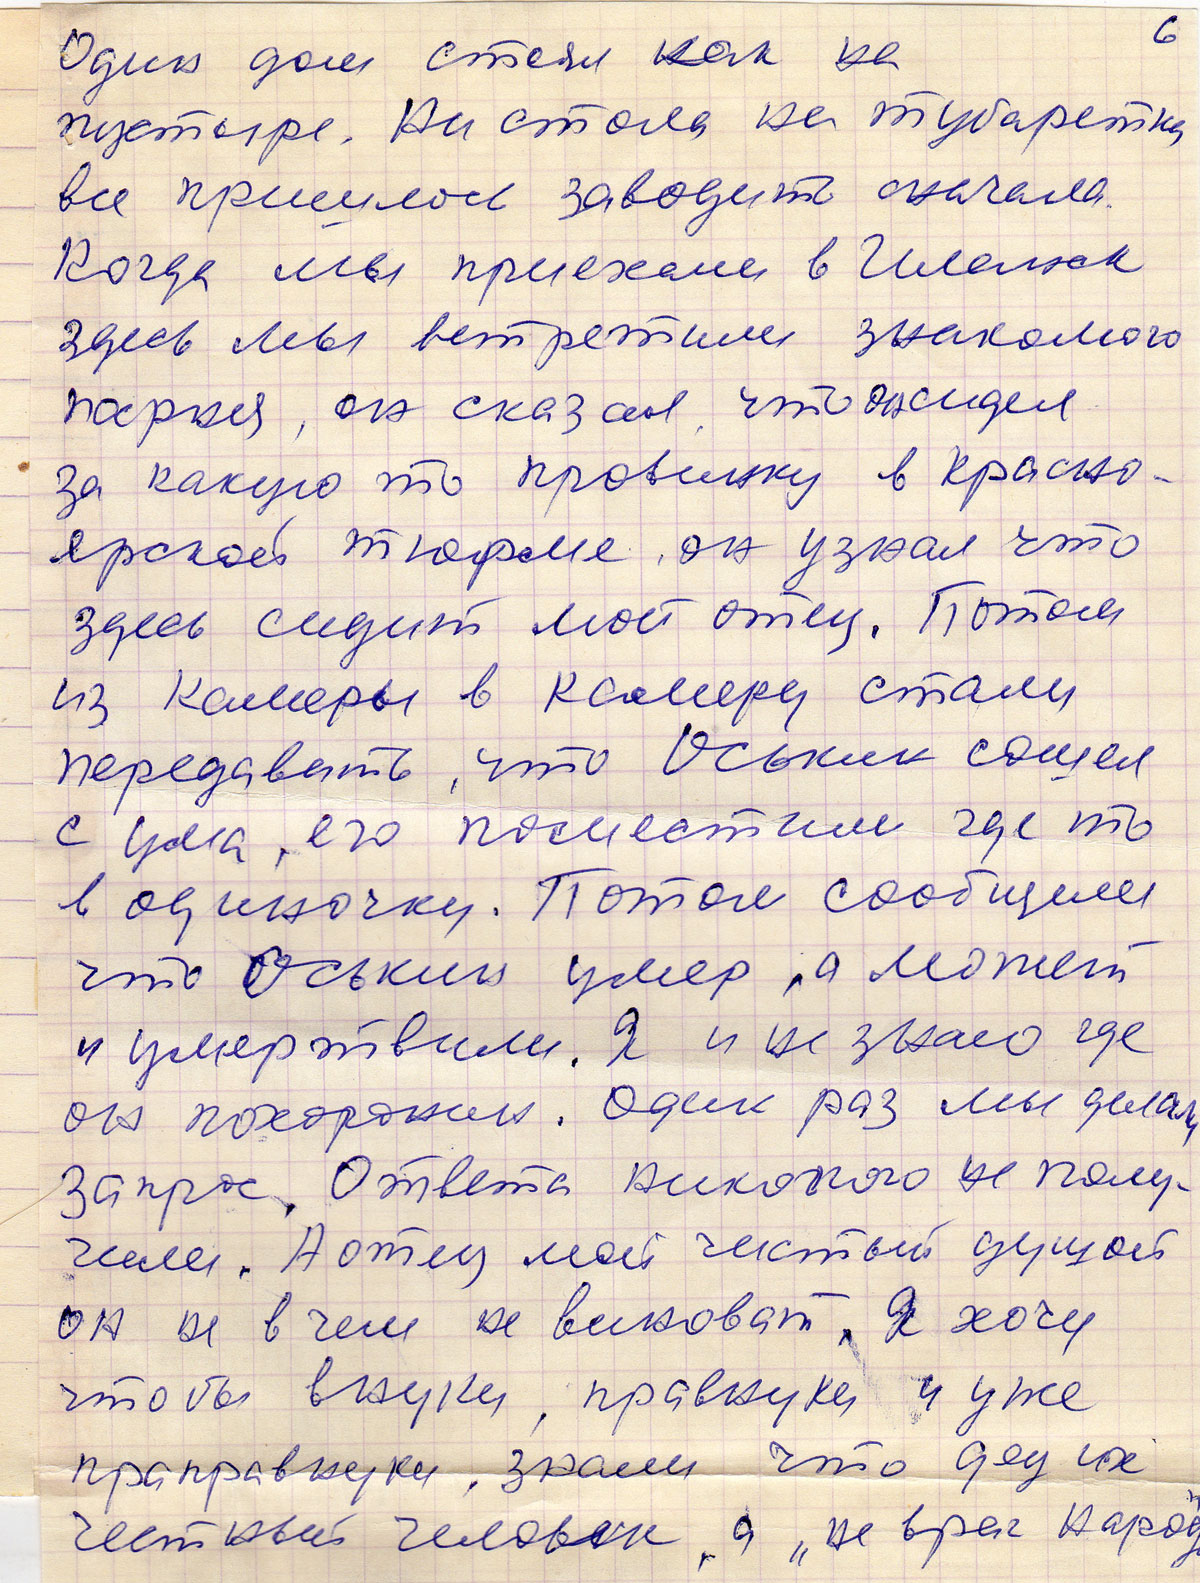 6
Один дом стоял как на
пустыре. Ни стола ни тубаретки
все пришлось заводить сначала.
Когда мы приехали в Иланск
здесь мы встретили знакомого
парня, он сказал, что он сидел
за какую то провинку в Красно-
ярской тюрме, он узнал что
здесь сидит мой отец. Потом
из камеры в камеру стали
передавать, что Оськин сошел
с ума, его поместили где то
в одиночку. Потом сообщили
что Оськин умер, а может
и умертвили. Я и не знаю где
он похоронин. Один раз мы делали
запрос. Ответа никокого не полу-
чили. А отец мой чистый душой
он не в чем не виноват. Я хочу
что бы внуки, правнуки и уже
праправнуки, знали что дед их
честный человек, а „не враг народа